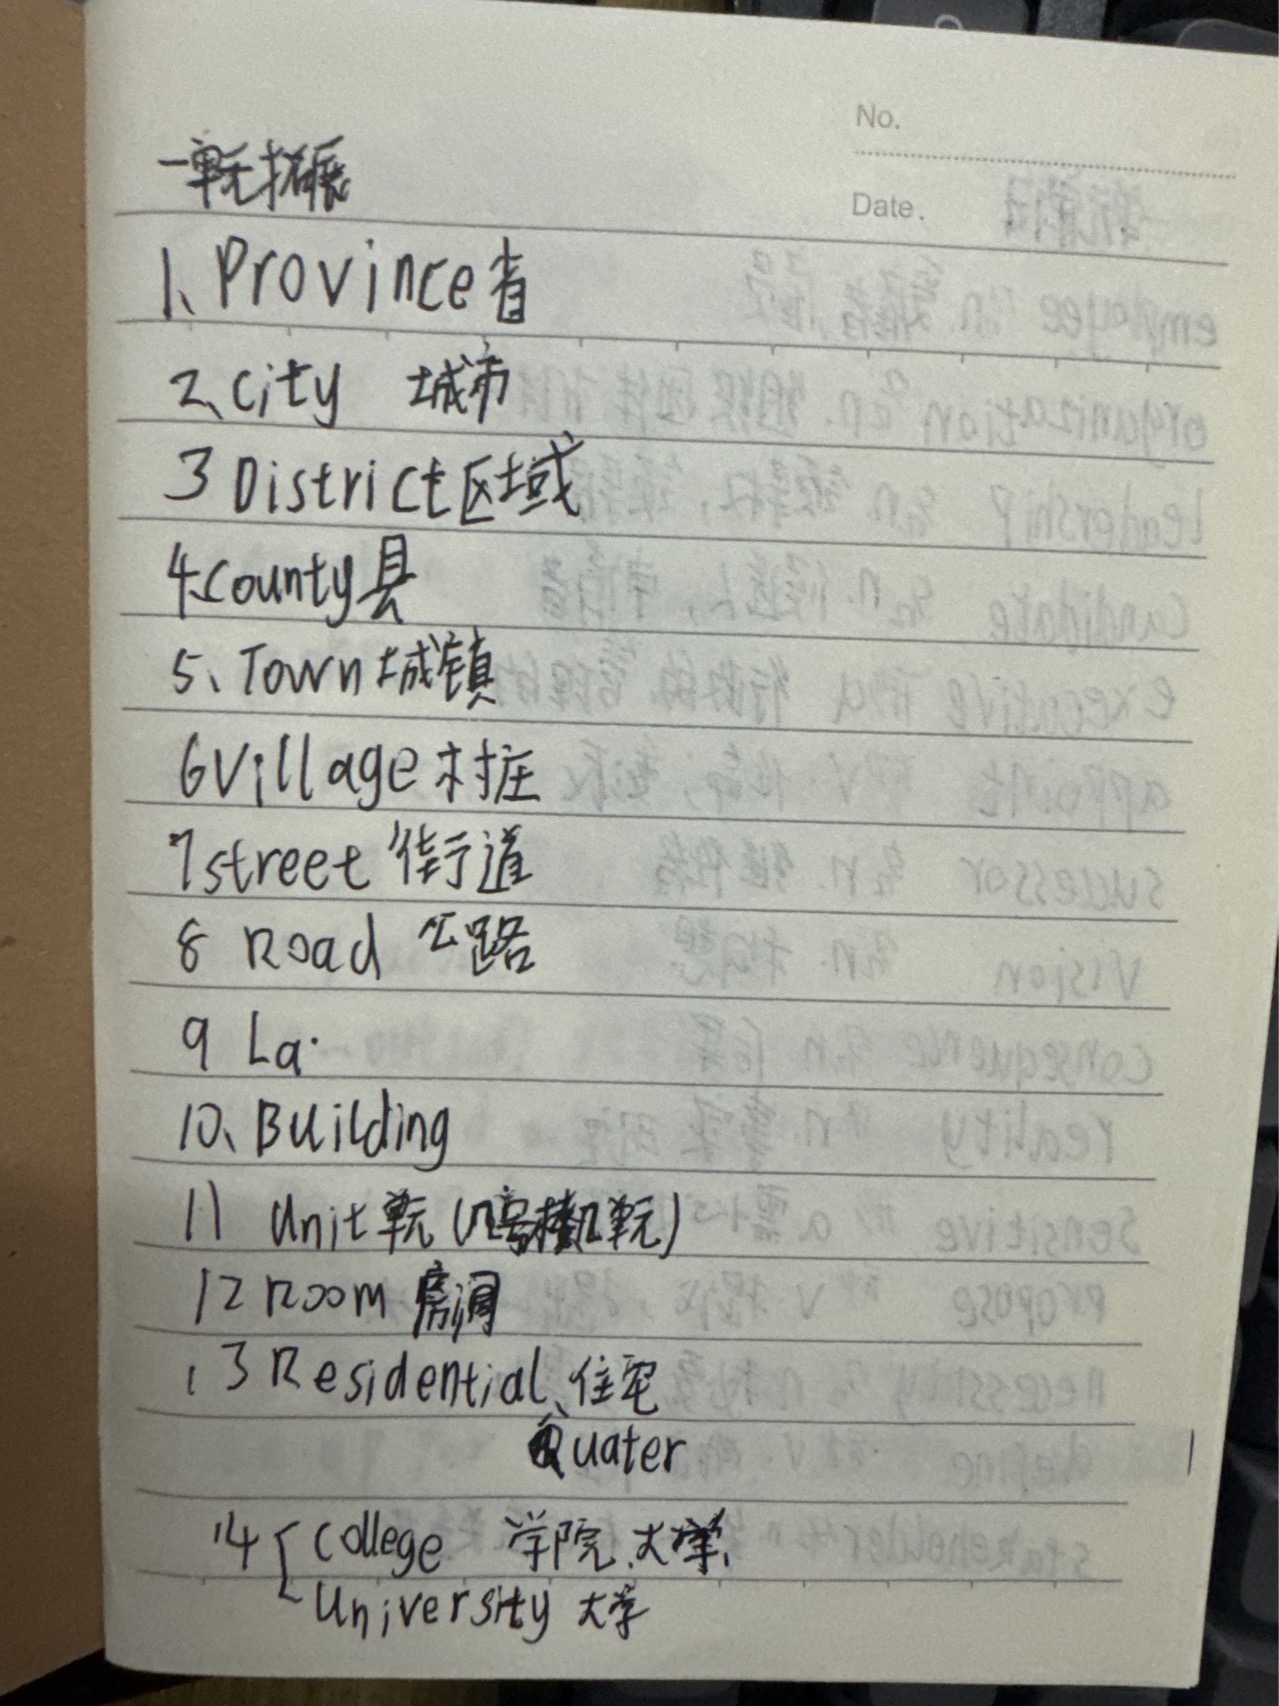 No.
一单元拓展
Date.
1、Province省
2、city 城市
3 District区域
4.county县
5、Town城镇
6Village村庄
7street 街道
8 Road 公路
9 La.
10、Building
11 Unit单元(几号楼几单元)
12 Room 房间
13 Residential、住宅
Quater
14 { College 学院、大学、
University 大学